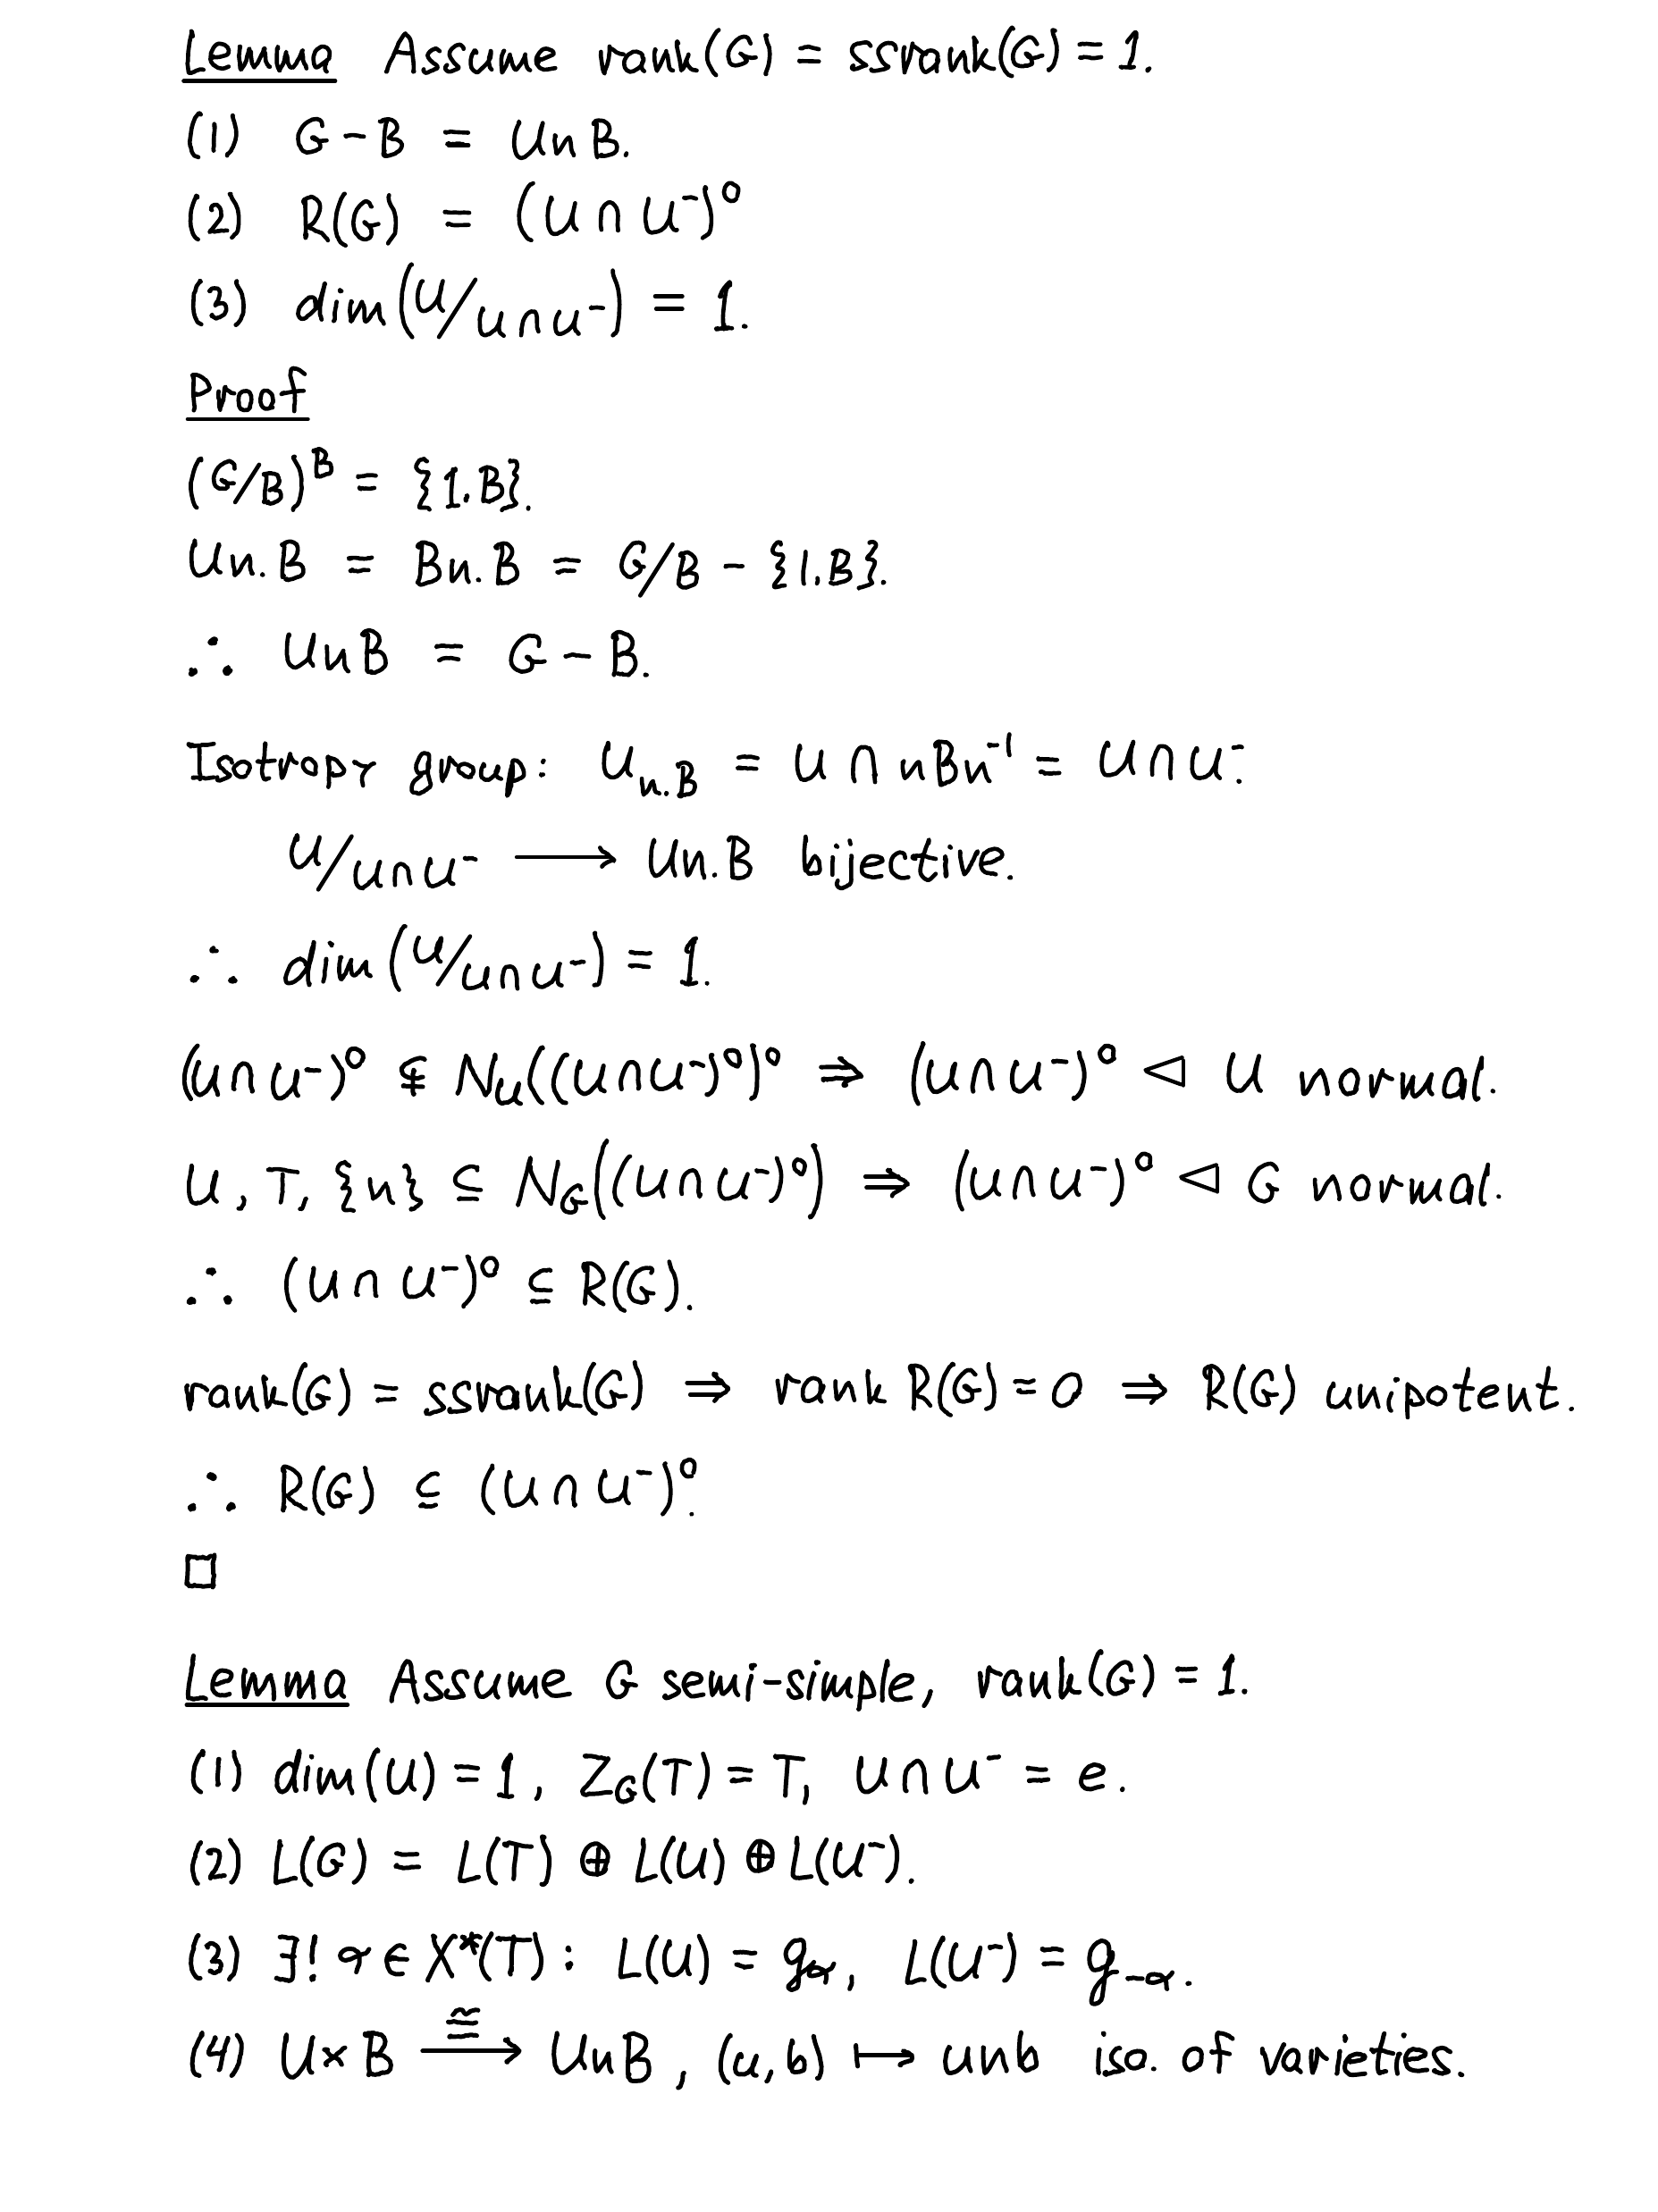 Lemma Assume rank(G) = ssrank(G) = 1.
(1) G - B = UnB.
(2) R(G) = (U ∩ U⁻)⁰
(3) dim(U/U∩U⁻) = 1.
Proof
(G/B)ᴮ = {1.B}.
Un.B = Bn.B = G/B - {1.B}.
∴ UnB = G - B.
Isotropy group: U_{n.B} = U ∩ nBn⁻¹ = U ∩ U⁻.
U/U∩U⁻ ⟶ Un.B bijective.
∴ dim(U/U∩U⁻) = 1.
(U∩U⁻)⁰ ⊊ N_U((U∩U⁻)⁰)⁰ ⇒ (U∩U⁻)⁰ ◁ U normal.
U, T, {n} ⊆ N_G((U∩U⁻)⁰) ⇒ (U∩U⁻)⁰ ◁ G normal.
∴ (U∩U⁻)⁰ ⊆ R(G).
rank(G) = ssrank(G) ⇒ rank R(G) = 0 ⇒ R(G) unipotent.
∴ R(G) ⊆ (U∩U⁻)⁰.
□
Lemma Assume G semi-simple, rank(G) = 1.
(1) dim(U) = 1, Z_G(T) = T, U∩U⁻ = e.
(2) L(G) = L(T) ⊕ L(U) ⊕ L(U⁻).
(3) ∃! α ∈ X*(T) : L(U) = g_α, L(U⁻) = g_{-α}.
(4) U×B ≅⟶ UnB, (u,b) ⟼ unb iso. of varieties.